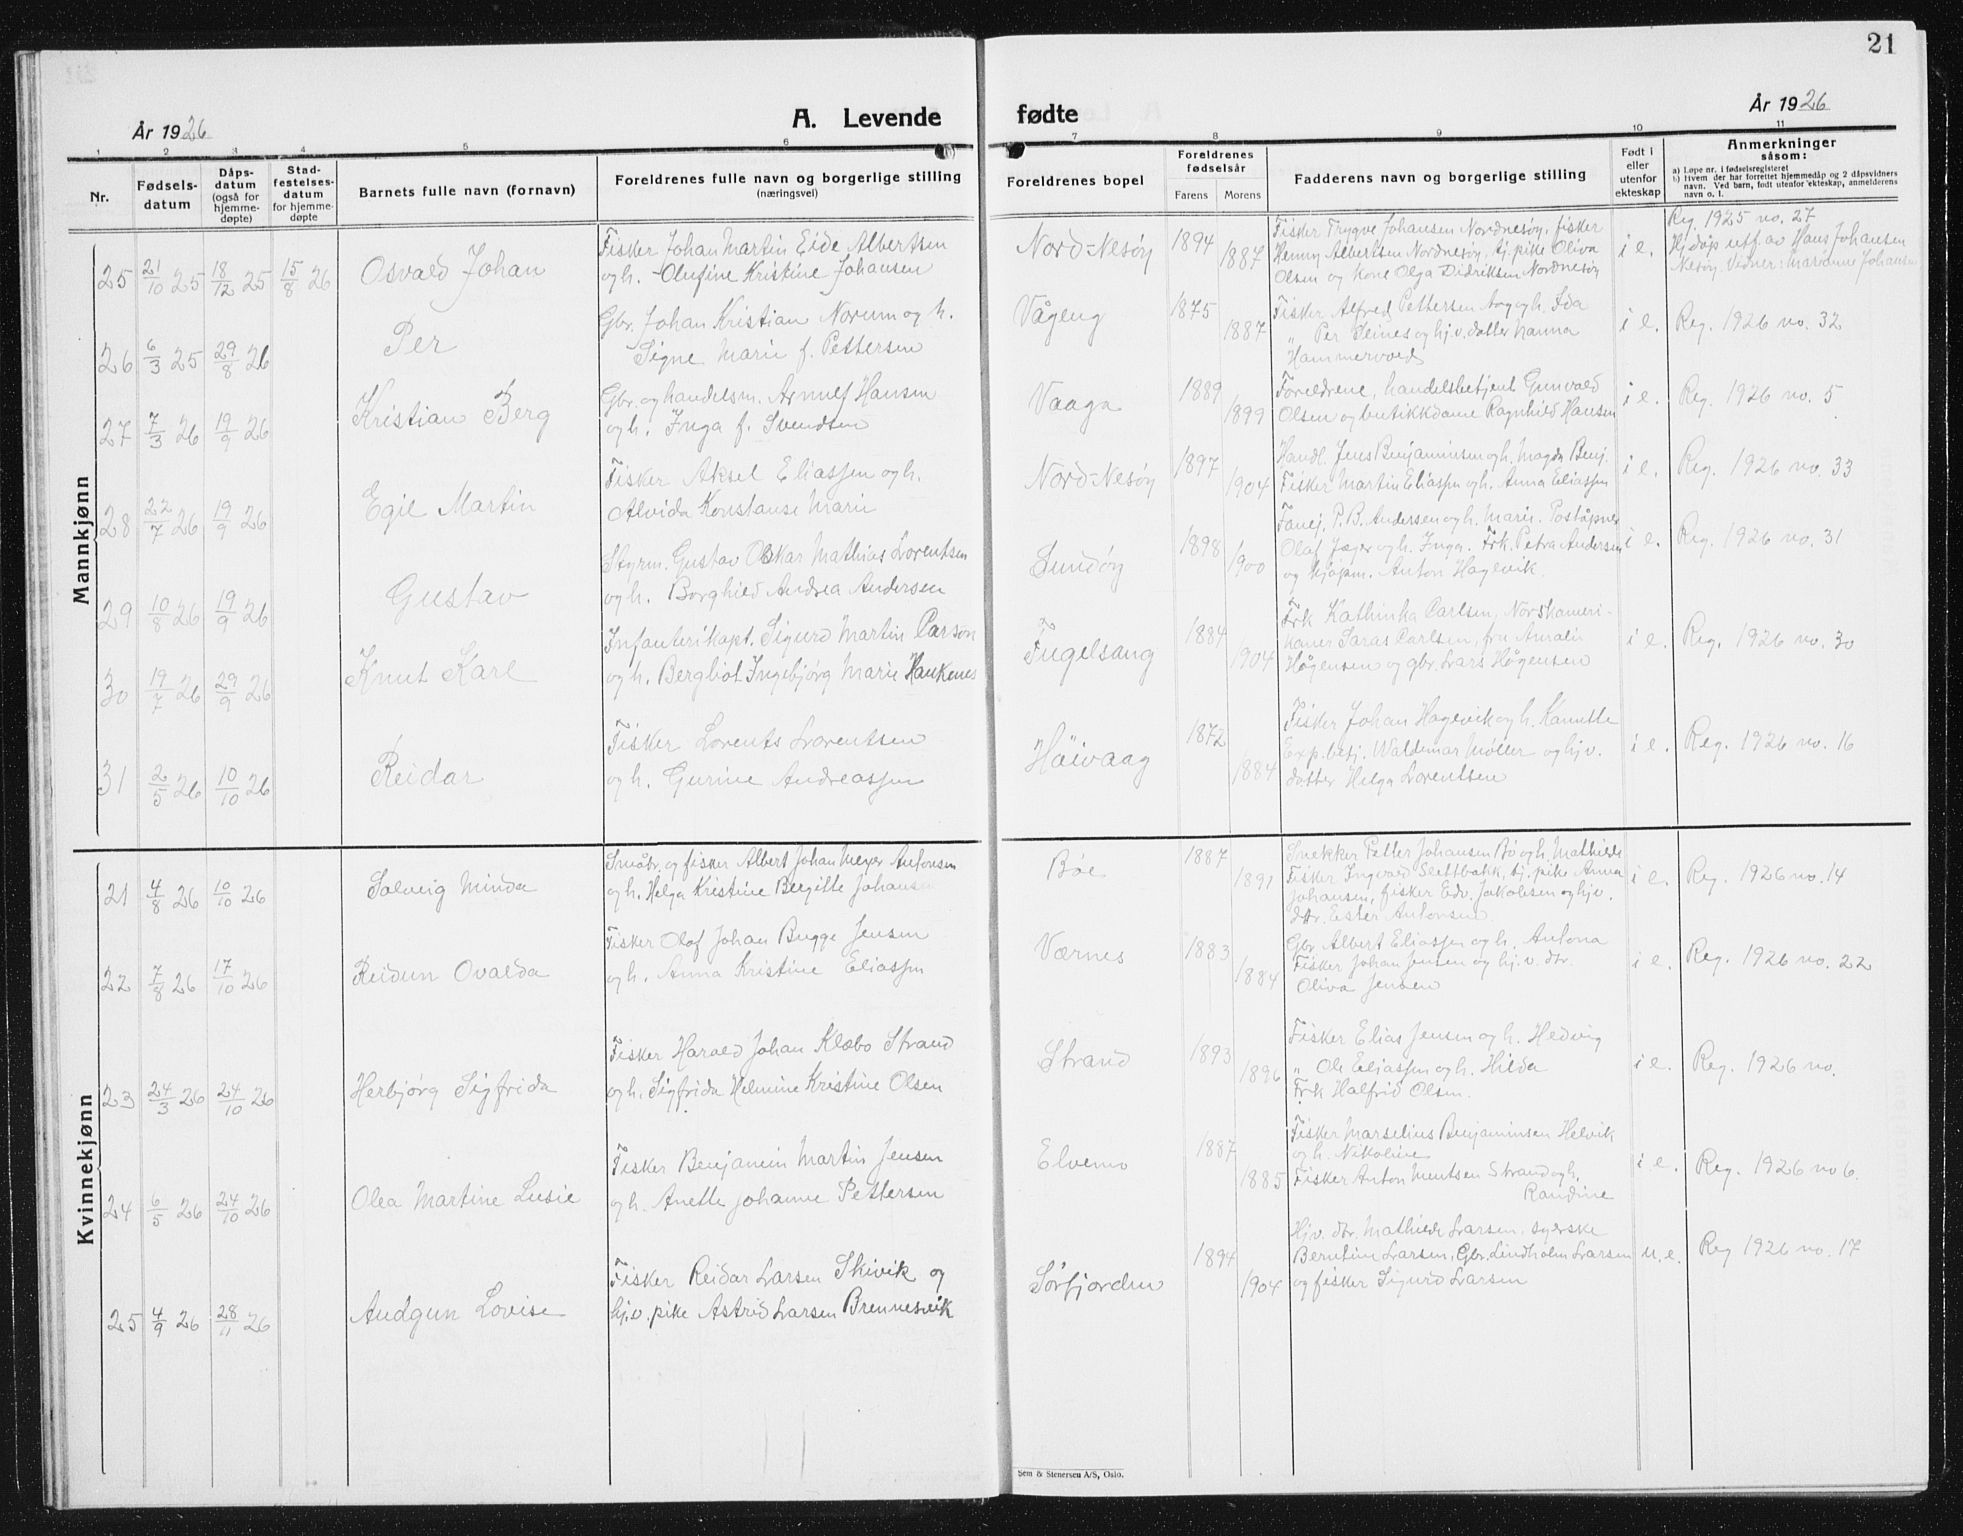 21
År 1926
A. Levende
fødte
År 1926
1 2 3 4 5 6 7 8 9 10 11
Nr.
Fødsels-
datum
Dåps-
datum
(også for
hjemme-
døpte)
Stad-
festelses-
datum
for hjemme-
døpte
Barnets fulle navn (fornavn)
Foreldrenes fulle navn og borgerlige stilling
(næringsvei)
Foreldrenes bopel
Foreldrenes
fødselsår
Farens Morens
Fadderens navn og borgerlige stilling
Født i
eller
utenfor
ekteskap
Anmerkninger
såsom:
a) Løpe nr. i fødselsregisteret
b) Hvem der har forrettet hjemmedåp og 2 dåpsvidners
navn. Ved barn, født utenfor ekteskap, anmelderens
navn o. l.
Mannkjønn
25 21/10 25 18/12 25 15/8 26 Osvald Johan
Fisker Johan Martin Eide Albertsen
og h. Olufine Kristine Johansen
Nord-Nesöy 1894 1887
Fisker Trygve Johansen Nordnesöy, fisker
Henny Albertsen Nordnesöy, tj. pike Oliva
Olsen og kone Olga Didriksen Nordnesöy
i e.
Reg. 1925 no. 27
Hj.dåp utf. av Hans Johansen
Nesöy. Vidner: Marianne Johansen
26 6/3 25 29/8 26 Per
Gbr. Johan Kristian Norum og h.
Signe Marie f. Pettersen
Vågeng 1875 1887
Fisker Alfred Pettersen Aag og h. Ida
" Per Selnes og hj.v. datter Hanna
Hammervold
i e. Reg. 1926 no. 32
27 7/3 26 19/9 26 Kristian Berg
Gbr. og handelsm. Arnulf Hansen
og h. Inga f. Svendsen
Vaaga 1889 1899
Foreldrene, handelsbetjent Gunvald
Olsen og butikkdame Ragnhild Hansen
i e. Reg. 1926 no. 5
28 22/7 26 19/9 26 Egil Martin
Fisker Aksel Eliassen og h.
Alvida Konstanse Marie
Nord-Nesöy 1897 1904
Handl. Jens Benjaminsen og h. Magda Benj.
Fisker Martin Eliassen og h. Anna Eliassen
i e. Reg. 1926 no. 33
29 10/8 26 19/9 26 Gustav
Styrm. Gustav Oskar Mathias Lorentsen
og h. Borghild Andrea Andersen
Sundöy 1898 1900
P. B. Andersen og h. Marie. Poståpner
Olaf Jæger og h. Inga. Frk. Petra Andersen
og kjöpm. Anton Hagevik.
i e. Reg. 1926 no. 31
30 19/7 26 29/9 26 Knut Karl
Infanterikapt. Sigurd Martin Carson
og h. Bergliot Ingebjörg Marie Haukenes
Fugelsang 1884 1904
Frk Kathinka Carlsen, Norskameri-
kaner Saras Carlsen, fru Amalie
Högensen og gbr. Lars Högensen
i e. Reg. 1926 no. 30
31 2/5 26 10/10 26 Reidar
Fisker Lorents Lorentsen
og h. Gurine Andreassen
Höivaag 1872 1884
Fisker Johan Hagevik og h. Kanutte
Exp.betj. Waldemar Møller og hj.v.
datter Helga Lorentsen
i e. Reg. 1926 no. 16
Kvinnekjønn
21 4/8 26 10/10 26 Solveig Minda
Småbr. og fisker Albert Johan Meyer Antonsen
og h. Helga Kristine Bergitte Johansen
Bøe 1887 1891
Snekker Petter Johansen Bö og h. Mathilde
Fisker Ingvald Slettbakk, tj. pike Anna
Johansen, fisker Edv. Jakobsen og hj.v.
dtr. Ester Antonsen
i e. Reg. 1926 no. 14
22 7/8 26 17/10 26 Reidun Ovalda
Fisker Olaf Johan Bugge Jensen
og h. Anna Kristine Eliassen
Værnes 1883 1884
Gbr. Albert Eliassen og h. Antona
Fisker Johan Jensen og hj.v. dtr.
Oliva Jensen
i e. Reg. 1926 no. 22
23 24/3 26 24/10 26 Herbjørg Sigfrida
Fisker Harald Johan Klæbo Strand
og h. Sigfrida Helmine Kristine Olsen
Strand 1893 1896
Fisker Elias Jensen og h. Hedvig
" Ole Eliassen og h. Hilda
Frk Halfrid Olsen.
i e. Reg. 1926 no.
24 6/5 26 24/10 26 Olea Martine Lusie
Fisker Benjamin Martin Jensen
og h. Anette Johanne Pettersen
Elvemo 1887 1885
Fisker Marselius Benjaminsen Helvik
og h. Nikoline
Fisker Anton Mentsen Strand og h.
Randine
i e. Reg. 1926 no 6.
25 4/9 26 28/11 26 Audgun Lovise
Fisker Reidar Larsen Skivik og
hj.v. pike Astrid Larsen Brennesvik
Sörfjorden 1894 1904
Hj.v. dtr. Mathilde Larsen, syerske
Berntine Larsen, Gbr. Lindholm Larsen
og fisker Sigurd Larsen
u. e. Reg 1926 no. 17
Sem & Stenersen A/S, Oslo.